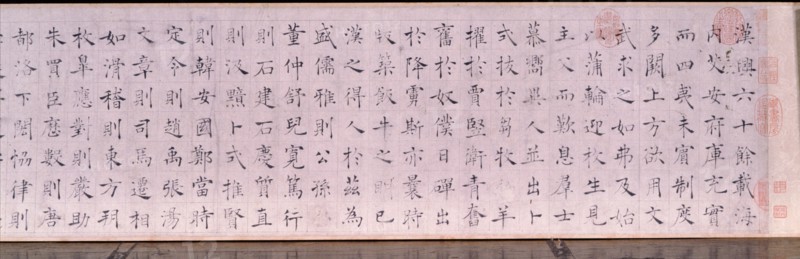 漢興六十餘載海
內艾安府庫充實
而四夷未賓制度
多闕上方欲用文
武求之如弗及始
以蒲輪迎枚生見
主父而歎息羣士
慕嚮異人並出卜
式拔於芻牧羊
擢於賈竪衛青奮
舊於奴僕日磾出
於降虜斯亦曩時
版築飯牛之朋已
漢之得人於茲為
盛儒雅則公孫
董仲舒兒寬篤行
則石建石慶質直
則汲黯卜式推賢
則韓安國鄭當時
定令則趙禹張湯
文章則司馬遷相
如滑稽則東方朔
枚皋應對則嚴助
朱買臣歷數則唐
都洛下閎協律則